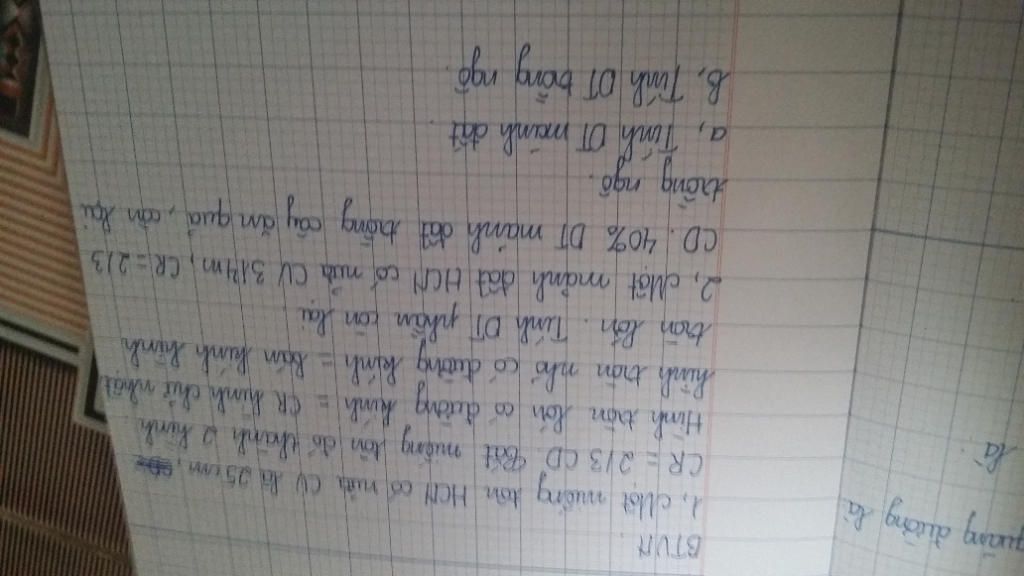 BTVN.
1, Một miếng tôn HCN có nửa CV là 25 cm
CR = 2/3 CD. Cắt miếng tôn đó thành 2 hình
Hình tròn lớn có đường kính = CR hình chữ nhật
hình tròn nhỏ có đường kính = bán kính hình
tròn lớn. Tính DT phần còn lại.
2, Một mảnh đất HCN có nửa CV 314m, CR = 2/3
CD. 40% DT mảnh đất trồng cây ăn quả, còn lại
trồng ngô.
a, Tính DT mảnh đất
b, Tính DT trồng ngô.
quãng đường là
là.